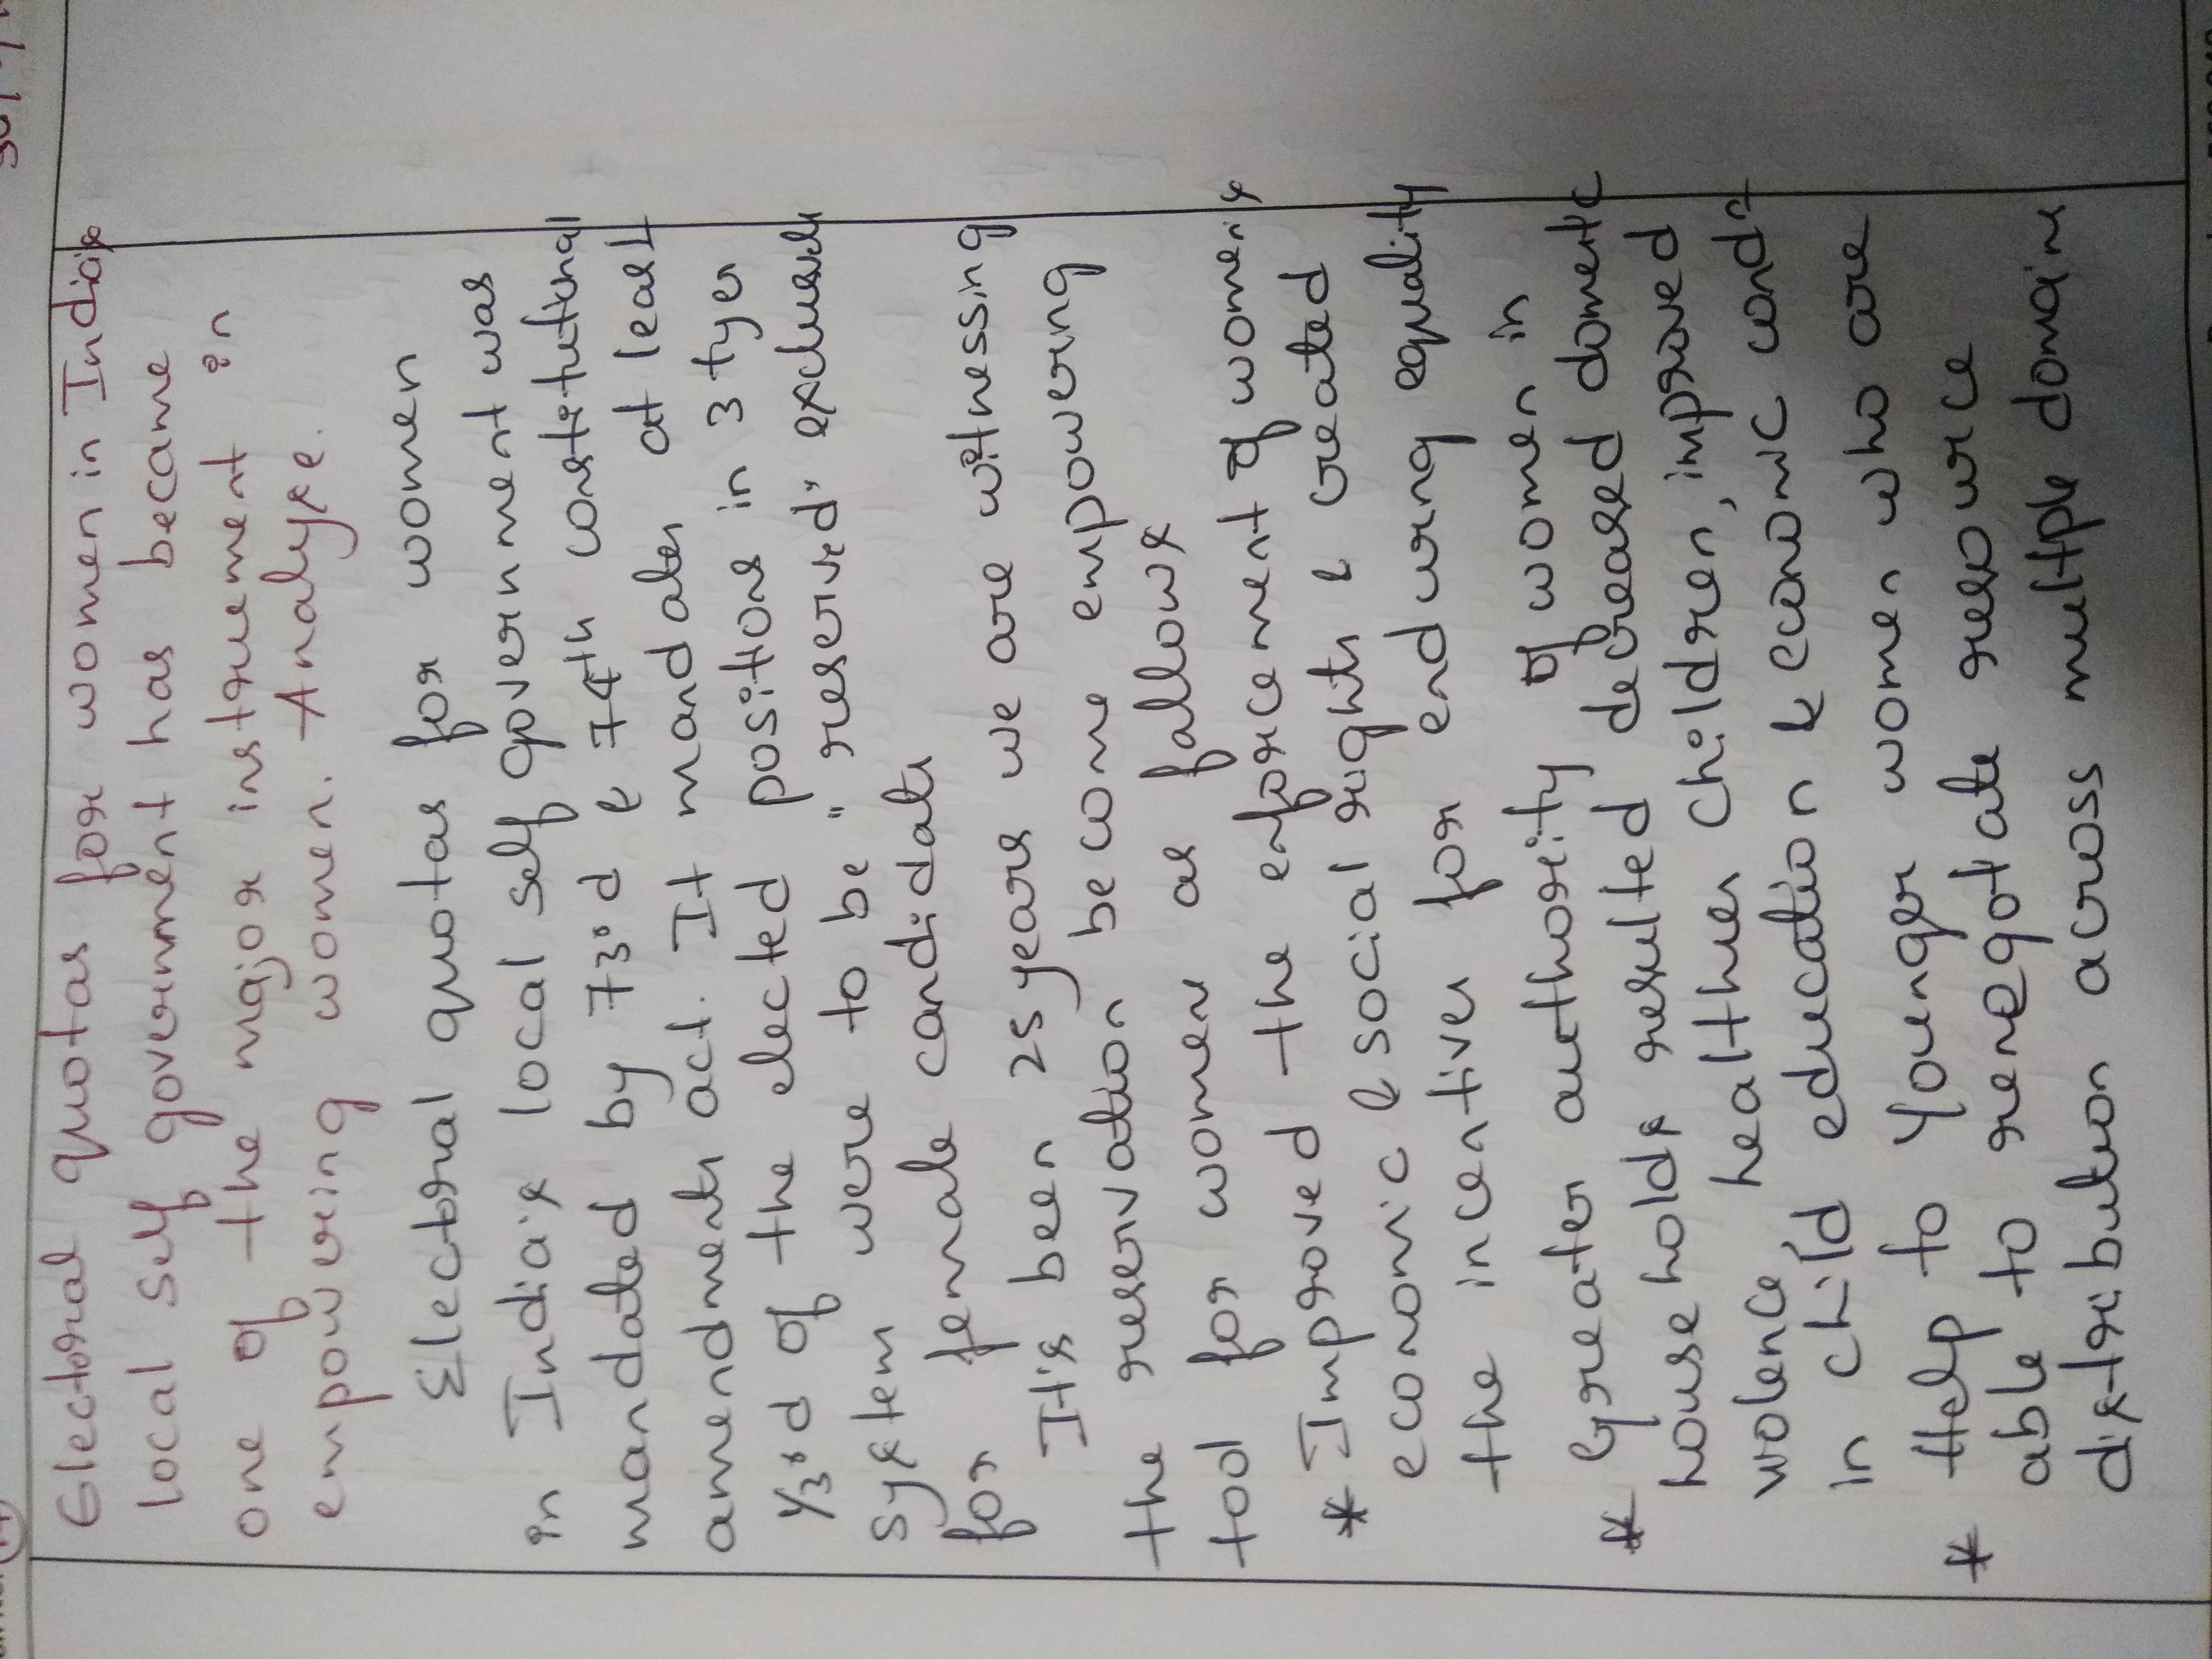 Electoral quotas for women in India's
local self government has became
one of the major instrument in
empowering women. Analyse.
Electoral quotas for women
in India's local self government was
mandated by 73rd & 74th constitutional
amendments act. It mandates at least
1/3rd of the elected positions in 3 tyer
system were to be "reserved" exclusively
for female candidate
It's been 25 years we are witnessing
the reservation become empowering
tool for women as fallows
* Improved the enforcement of women's
economic & social rights & created
the incentives for enduring equality
* Greater authority of women in
households resulted decreased domestic
violence healthier children, improved
in child education & economic condn
* Help to Younger women who are
able to renegotiate resource
distribution across multple domains